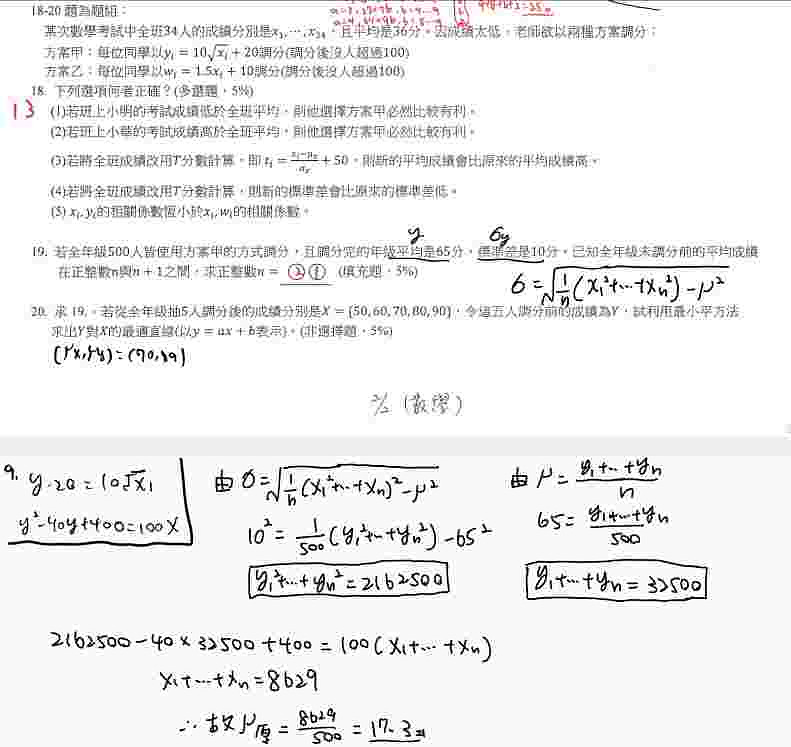 18-20 題為題組：
某次數學考試中全班34人的成績分別是x₁,⋯,x₃₄，且平均是36分。因成績太低，老師欲以兩種方案調分：
方案甲：每位同學以yᵢ = 10√xᵢ + 20調分(調分後沒人超過100)
方案乙：每位同學以wᵢ = 1.5xᵢ + 10調分(調分後沒人超過100)
18. 下列選項何者正確？(多選題，5%)
13
(1)若班上小明的考試成績低於全班平均，則他選擇方案甲必然比較有利。
(2)若班上小華的考試成績高於全班平均，則他選擇方案甲必然比較有利。
(3)若將全班成績改用T分數計算，即 tᵢ = (xᵢ−μₓ)/σₓ + 50，則新的平均成績會比原來的平均成績高。
(4)若將全班成績改用T分數計算，則新的標準差會比原來的標準差低。
(5) xᵢ, yᵢ的相關係數恆小於xᵢ, wᵢ的相關係數。
y 6y
19. 若全年級500人皆使用方案甲的方式調分，且調分完的年級平均是65分，標準差是10分。已知全年級未調分前的平均成績
在正整數n與n + 1之間，求正整數n = ②① (填充題，5%)
6 = √(1/n (x₁²+⋯+xₙ²) − μ²)
20. 承 19.，若從全年級抽5人調分後的成績分別是X = {50, 60, 70, 80, 90}，令這五人調分前的成績為Y，試利用最小平方法
求出Y對X的最適直線(以y = ax + b表示)。(非選擇題，5%)
9. y-20 = 10√x₁
y²-40y+400=100X
由 σ = √(1/n (x₁²+⋯+xₙ)² − μ²)
10² = 1/500 (y₁²+⋯+yₙ²) − 65²
y₁²+⋯+yₙ² = 2162500
由 μ = (y₁+⋯+yₙ)/n
65 = (y₁+⋯+yₙ)/500
y₁+⋯+yₙ = 32500
2162500 − 40 × 32500 + 400 = 100(x₁+⋯+xₙ)
x₁+⋯+xₙ = 8629
∴ 故 μ原 = 8629/500 = 17.3